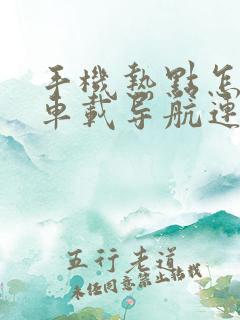 手機熱點怎
車載导航連
五行老道
未经同意禁止转载